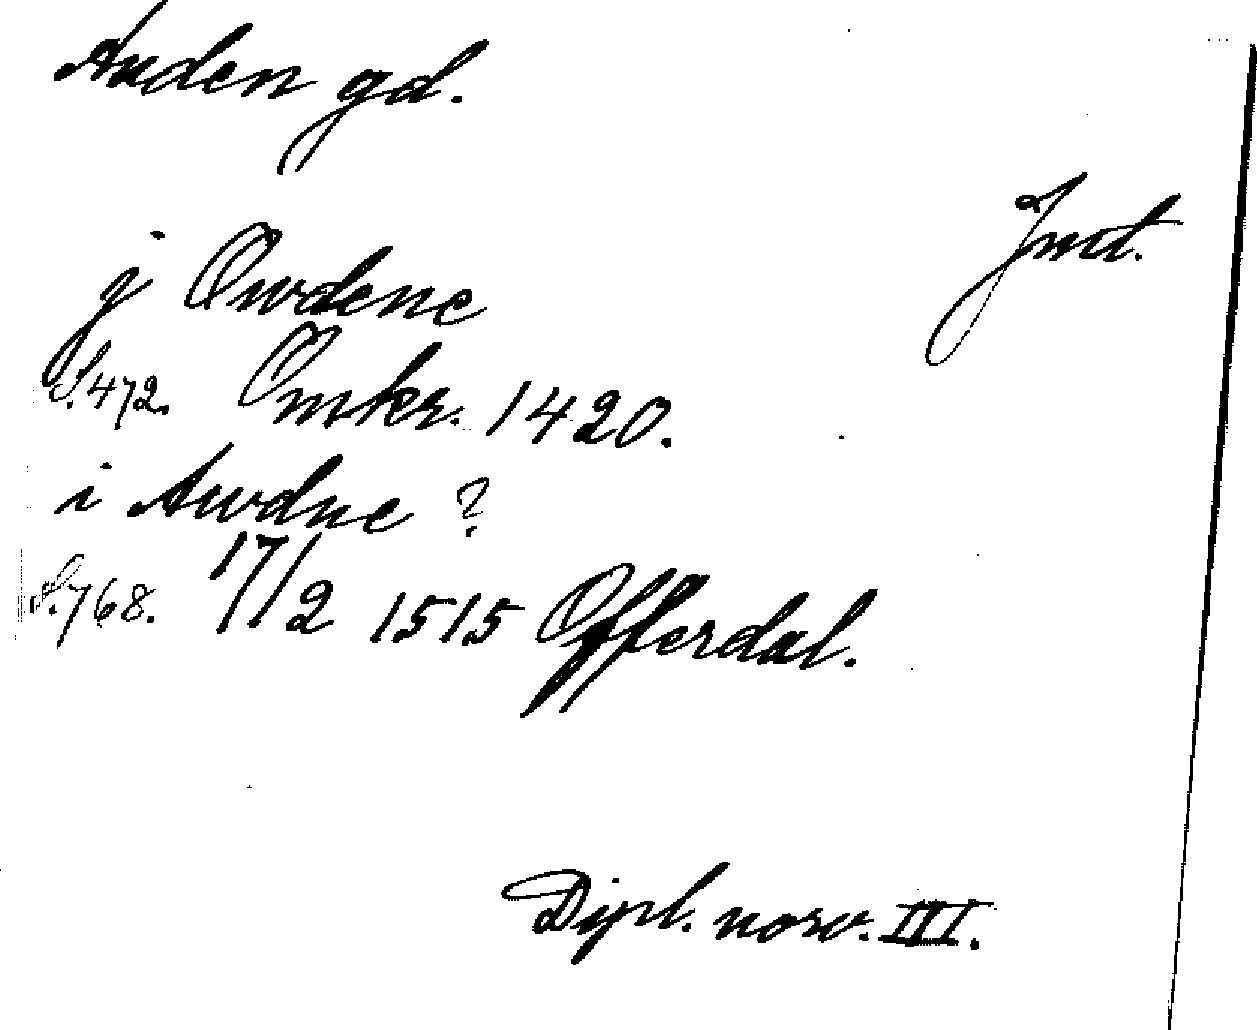 Auden gd.
Jmt.
j Owdene
S. 472. Omkr. 1420.
i Awdne ?
S. 768. 17/2 1515 Offerdal.
Dipl. norv. III.